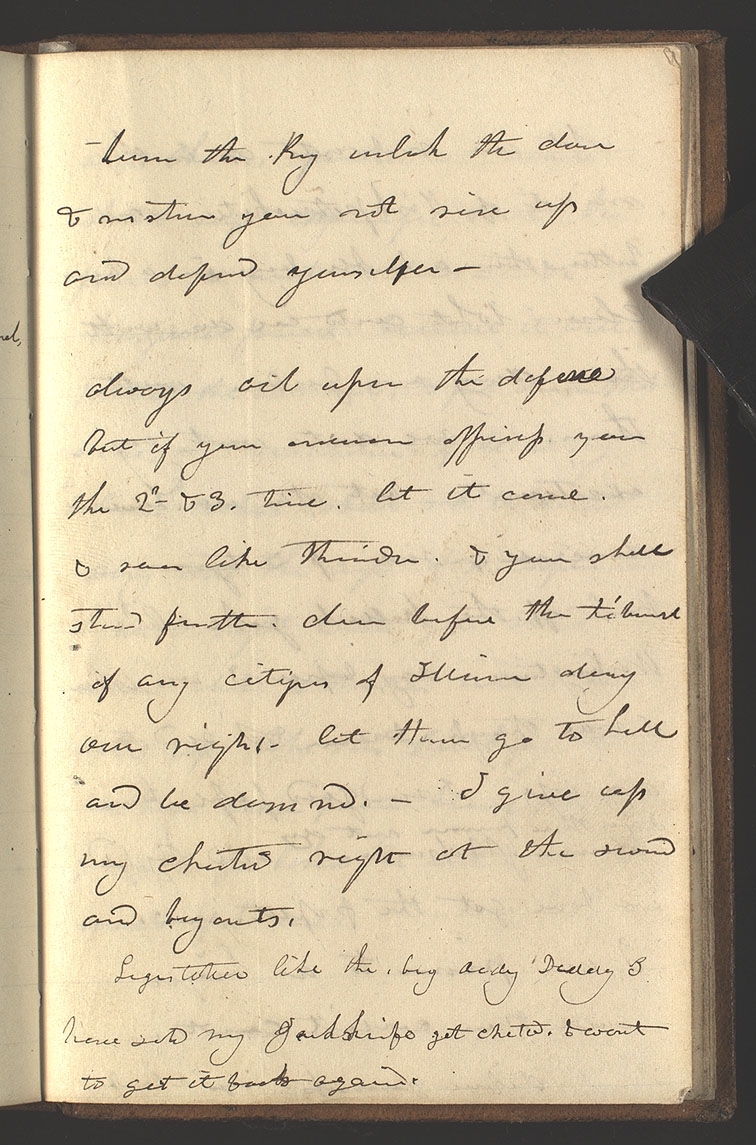 turn the Key unlock the door
& sisters you not rise up
and defend yourselfes —
always act upon the defence
but if your enemies oppress you
the 2d & 3. time. let it come.
& roar like thunder. & you shall
stand forth. clear before the tribunal
of any citizens of Illinois deny
our right - let them go to hell
and be damned. — I give up
my chartered right at the sword
and bayonets.
Legislature like the big Daddy
have sold my Jack knife got cheted. & want
to get it back again.